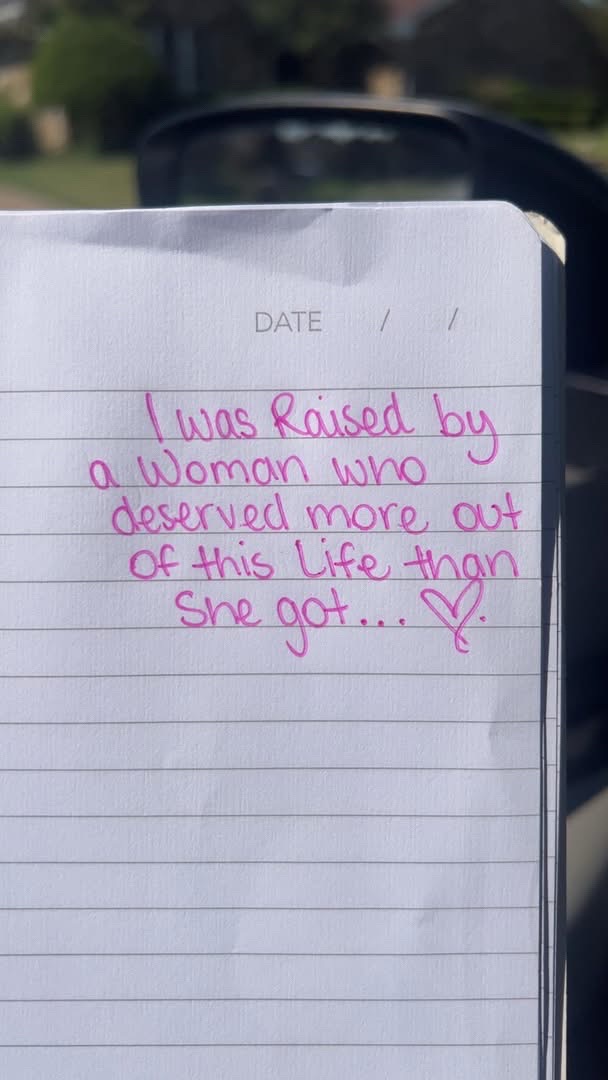 DATE / /
I was Raised by
a Woman who
deserved more out
of this Life than
She got... ♡.